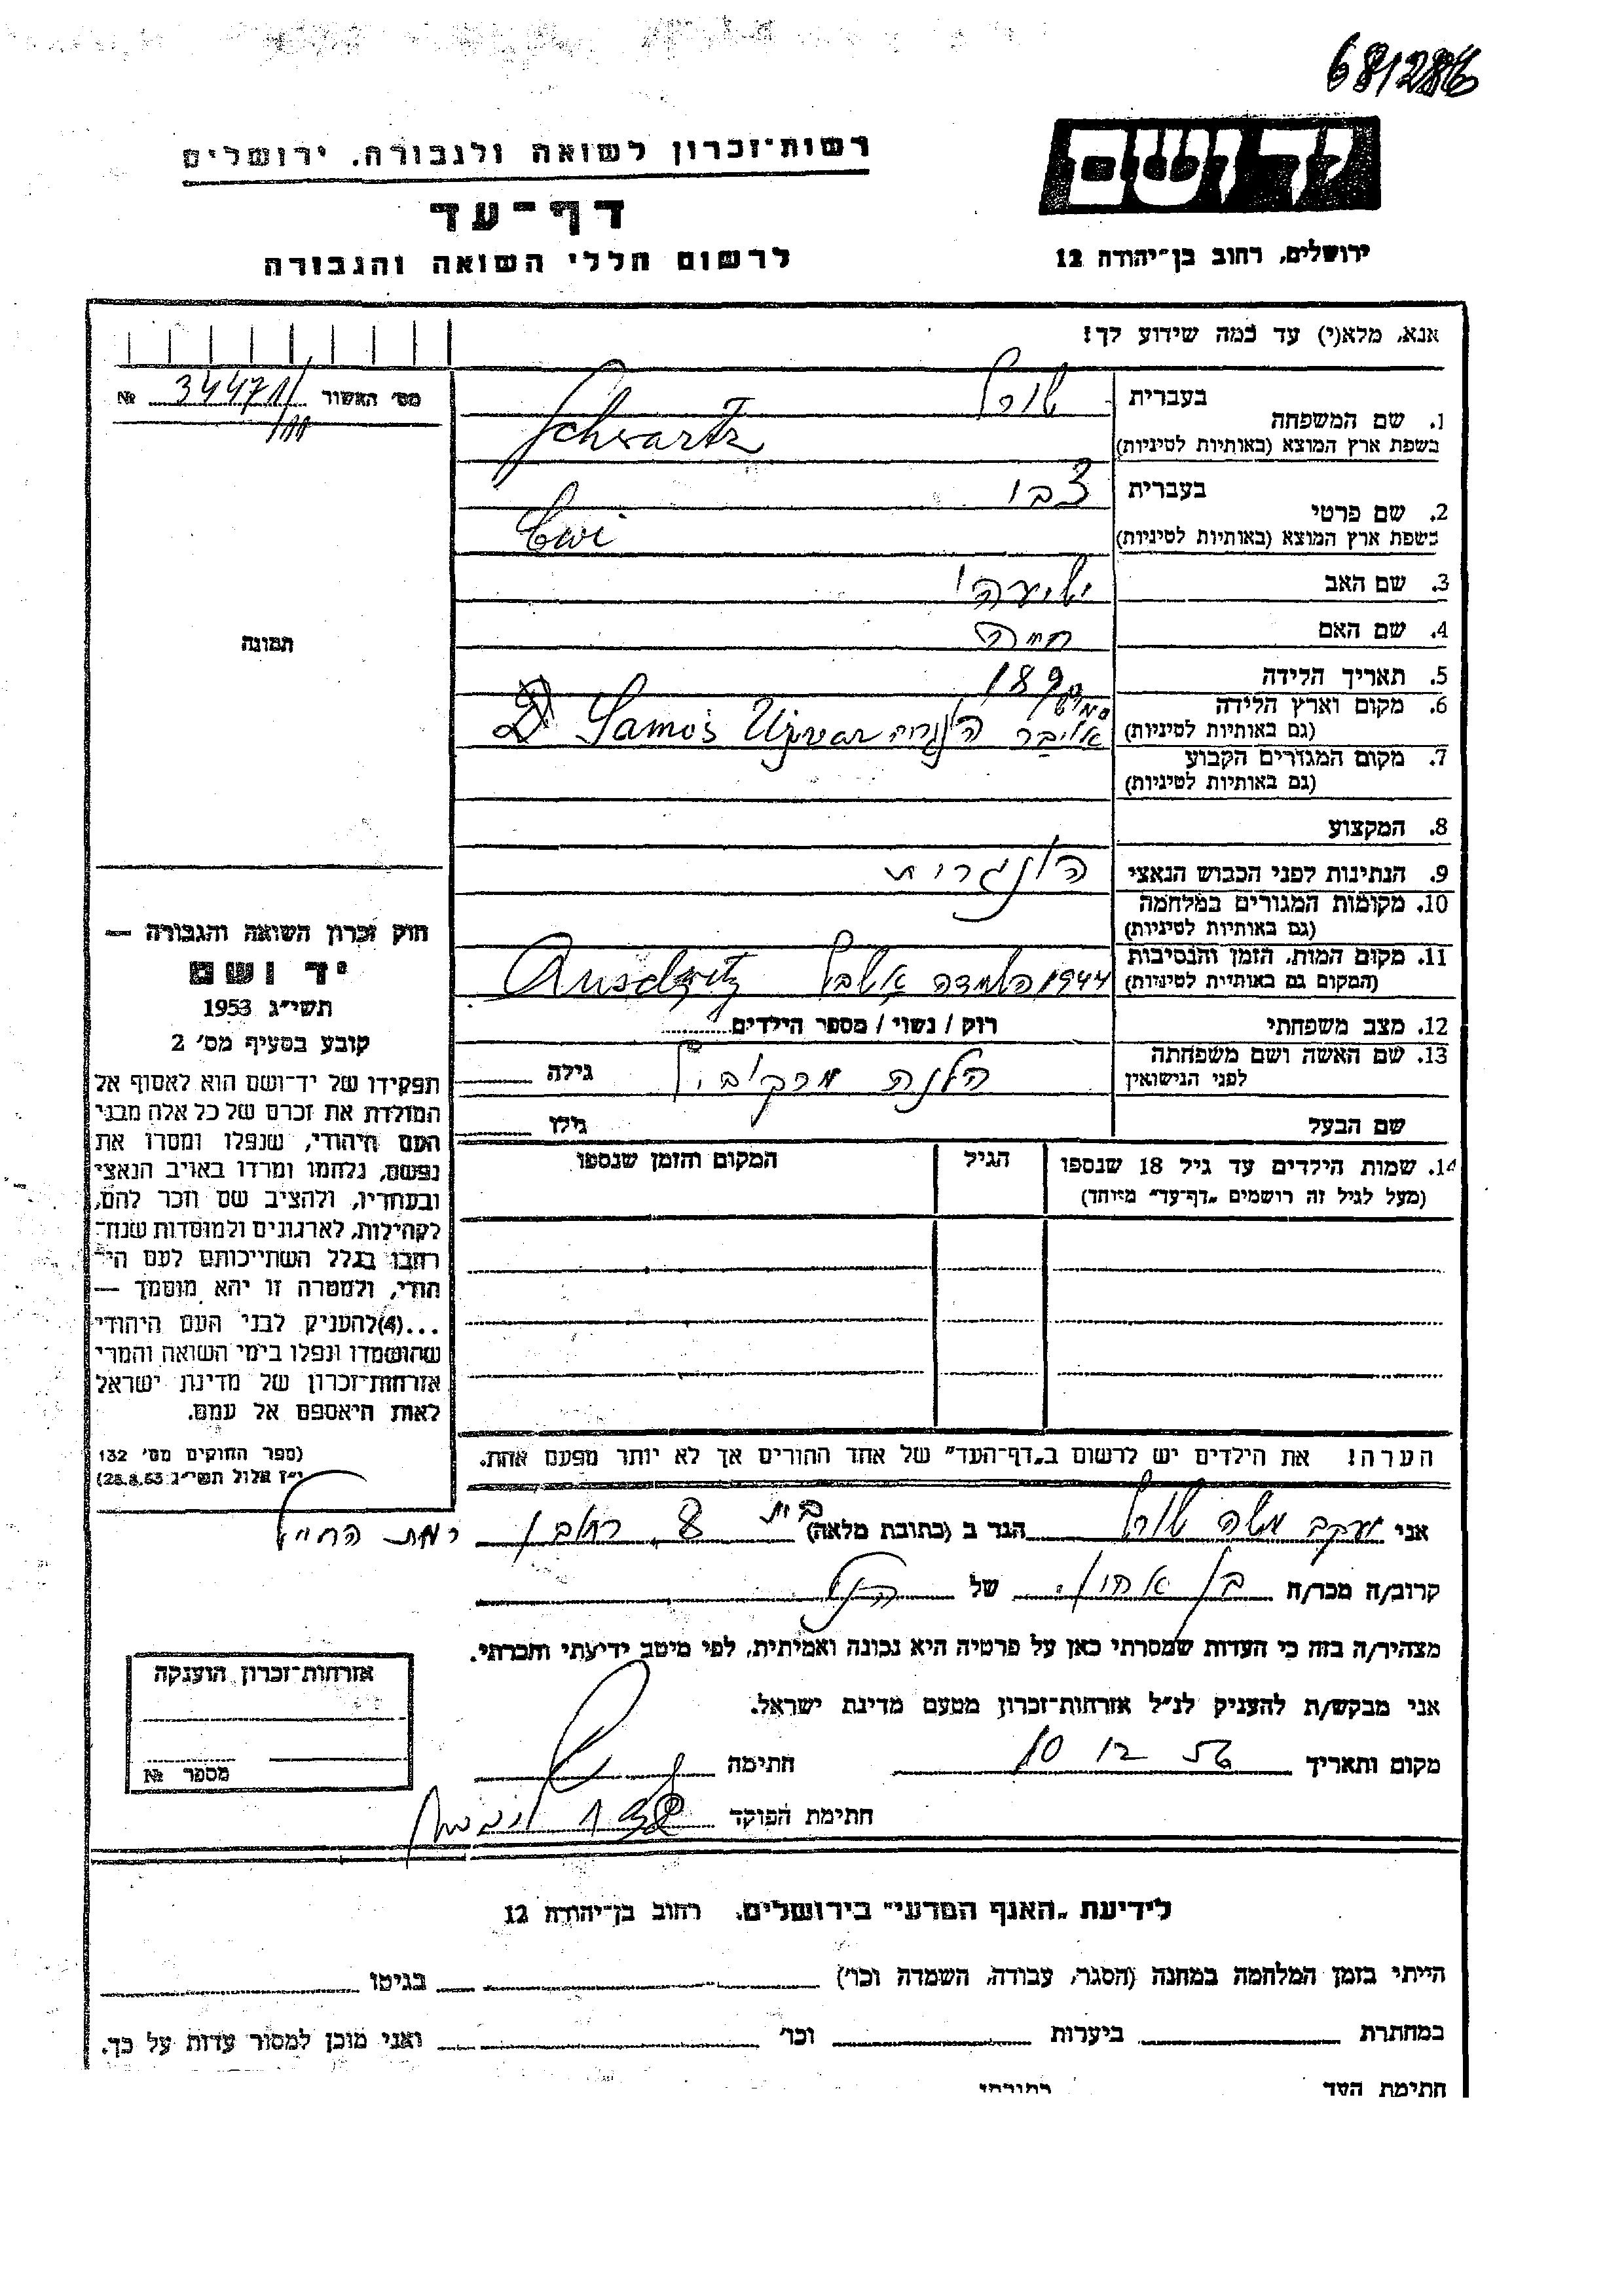 681286
יד ושם
ירושלים, רחוב בן־יהודה 12
רשות־זכרון לשואה ולגבורה, ירושלים
דף־עד
לרשום חללי השואה והגבורה
אנא, מלא(י) עד כמה שידוע לך!
מס׳ האשור 34471 №
1. שם המשפחה
בעברית שורץ
בשפת ארץ המוצא (באותיות לטיניות) Schwartz
2. שם פרטי
בעברית צבי
בשפת ארץ המוצא (באותיות לטיניות) Cwi
3. שם האב ישעיהו
4. שם האם חיה
5. תאריך הלידה
6. מקום וארץ הלידה
(גם באותיות לטיניות) הונגריה Samos Ujvar
7. מקום המגורים הקבוע
(גם באותיות לטיניות)
8. המקצוע
9. הנתינות לפני הכבוש הנאצי הונגרית
10. מקומות המגורים במלחמה
(גם באותיות לטיניות)
11. מקום המות, הזמן והנסיבות
(המקום גם באותיות לטיניות) 1944 Auschwitz
12. מצב משפחתי רווק / נשוי / מספר הילדים
13. שם האשה ושם משפחתה
לפני הנישואין הלנה מרקוביץ גילה
שם הבעל גילו
14. שמות הילדים עד גיל 18 שנספו הגיל המקום והזמן שנספו
(מעל לגיל זה רושמים „דף־עד״ מיוחד)
הערה! את הילדים יש לרשום ב„דף־העד״ של אחד ההורים אך לא יותר מפעם אחת.
תמונה
חוק זכרון השואה והגבורה —
יד ושם
תשי״ג 1953
קובע בסעיף מס׳ 2
תפקידו של יד־ושם הוא לאסוף אל
המולדת את זכרם של כל אלה מבני
העם היהודי, שנפלו ומסרו את
נפשם, נלחמו ומרדו באויב הנאצי
ובעוזריו, ולהציב שם וזכר להם,
לקהילות, לארגונים ולמוסדות שנח־
רבו בגלל השתייכותם לעם הי־
הודי, ולמטרה זו יהא מוסמך —
...(4)להעניק לבני העם היהודי
שהושמדו ונפלו בימי השואה והמרי
אזרחות־זכרון של מדינת ישראל
לאות היאספם אל עמם.
(ספר החוקים מס׳ 132
י״ז אלול תשי״ג 28.8.53)
אני יעקב משה שורץ הגר ב (כתובת מלאה) בית 8
קרוב/ה מכר/ה בן אחיו של הנ״ל
מצהיר/ה בזה כי העדות שמסרתי כאן על פרטיה היא נכונה ואמיתית, לפי מיטב ידיעתי והכרתי.
אני מבקש/ת להעניק לנ״ל אזרחות־זכרון מטעם מדינת ישראל.
מקום ותאריך 10 12 56 חתימה
חתימת הפוקד
אזרחות־זכרון הוענקה
מספר №
לידיעת „האגף המדעי״ בירושלים, רחוב בן־יהודה 12
הייתי בזמן המלחמה במחנה (הסגר, עבודה, השמדה וכו׳) בגיטו
במחתרת ביערות וכו׳ ואני מוכן למסור עדות על כך.
חתימת העד